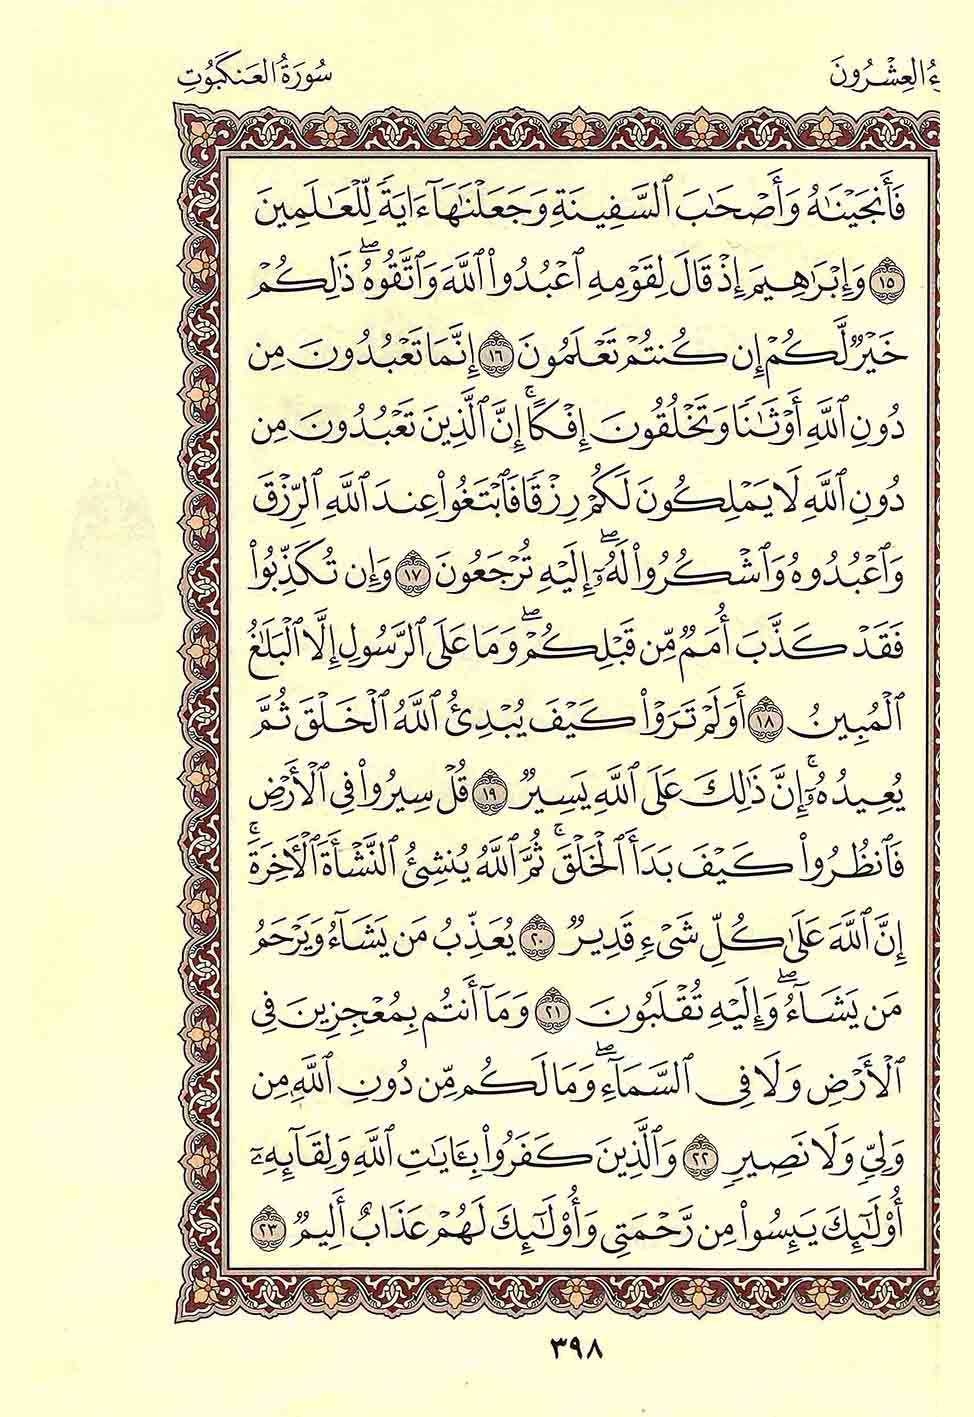 ءُ العِشْرُونَ سُورَةُ العَنكَبُوتِ
فَأَنجَيْنَٰهُ وَأَصْحَٰبَ ٱلسَّفِينَةِ وَجَعَلْنَٰهَآ ءَايَةً لِّلْعَٰلَمِينَ
١٥ وَإِبْرَٰهِيمَ إِذْ قَالَ لِقَوْمِهِ ٱعْبُدُوا۟ ٱللَّهَ وَٱتَّقُوهُ ۖ ذَٰلِكُمْ
خَيْرٌ لَّكُمْ إِن كُنتُمْ تَعْلَمُونَ ١٦ إِنَّمَا تَعْبُدُونَ مِن
دُونِ ٱللَّهِ أَوْثَٰنًا وَتَخْلُقُونَ إِفْكًا ۚ إِنَّ ٱلَّذِينَ تَعْبُدُونَ مِن
دُونِ ٱللَّهِ لَا يَمْلِكُونَ لَكُمْ رِزْقًا فَٱبْتَغُوا۟ عِندَ ٱللَّهِ ٱلرِّزْقَ
وَٱعْبُدُوهُ وَٱشْكُرُوا۟ لَهُۥٓ ۖ إِلَيْهِ تُرْجَعُونَ ١٧ وَإِن تُكَذِّبُوا۟
فَقَدْ كَذَّبَ أُمَمٌ مِّن قَبْلِكُمْ ۖ وَمَا عَلَى ٱلرَّسُولِ إِلَّا ٱلْبَلَٰغُ
ٱلْمُبِينُ ١٨ أَوَلَمْ تَرَوْا۟ كَيْفَ يُبْدِئُ ٱللَّهُ ٱلْخَلْقَ ثُمَّ
يُعِيدُهُۥٓ ۚ إِنَّ ذَٰلِكَ عَلَى ٱللَّهِ يَسِيرٌ ١٩ قُلْ سِيرُوا۟ فِى ٱلْأَرْضِ
فَٱنظُرُوا۟ كَيْفَ بَدَأَ ٱلْخَلْقَ ۚ ثُمَّ ٱللَّهُ يُنشِئُ ٱلنَّشْأَةَ ٱلْـَٔاخِرَةَ ۚ
إِنَّ ٱللَّهَ عَلَىٰ كُلِّ شَىْءٍ قَدِيرٌ ٢٠ يُعَذِّبُ مَن يَشَآءُ وَيَرْحَمُ
مَن يَشَآءُ ۖ وَإِلَيْهِ تُقْلَبُونَ ٢١ وَمَآ أَنتُم بِمُعْجِزِينَ فِى
ٱلْأَرْضِ وَلَا فِى ٱلسَّمَآءِ ۖ وَمَا لَكُم مِّن دُونِ ٱللَّهِ مِن
وَلِىٍّ وَلَا نَصِيرٍ ٢٢ وَٱلَّذِينَ كَفَرُوا۟ بِـَٔايَٰتِ ٱللَّهِ وَلِقَآئِهِۦٓ
أُو۟لَٰٓئِكَ يَئِسُوا۟ مِن رَّحْمَتِى وَأُو۟لَٰٓئِكَ لَهُمْ عَذَابٌ أَلِيمٌ ٢٣
٣٩٨